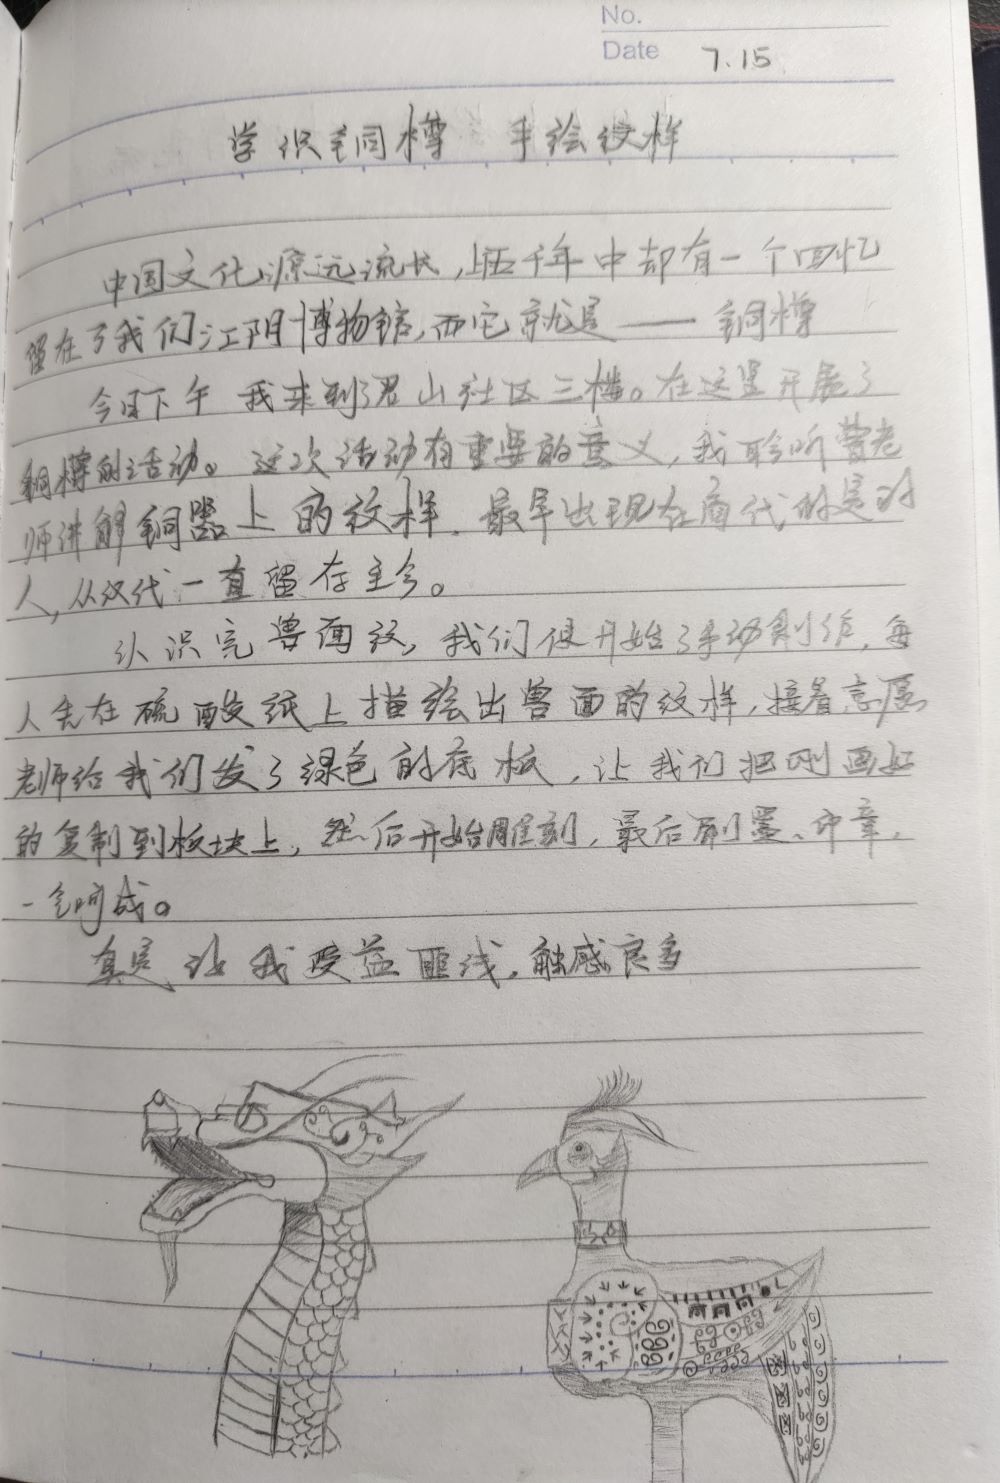 No.
Date 7.15
学识铜樽 手绘纹样
中国文化源远流长,上五千年中却有一个回忆
留在了我们江阴博物馆,而它就是——铜樽
今日下午 我来到了君山社区三楼。在这里开展了
铜樽的活动。这次活动有重要的意义,我聆听曹老
师讲解铜器上的纹样,最早出现在商代的是对
人,从汉代一直留存至今。
认识完兽面纹,我们便开始了手动制作,每
人先在硫酸纸上描绘出兽面的纹样,接着志愿
老师给我们发了绿色的底板,让我们把刚画好
的复制到板块上,然后开始雕刻,最后刷墨、印章,
一气呵成。
真是让我受益匪浅,触感良多